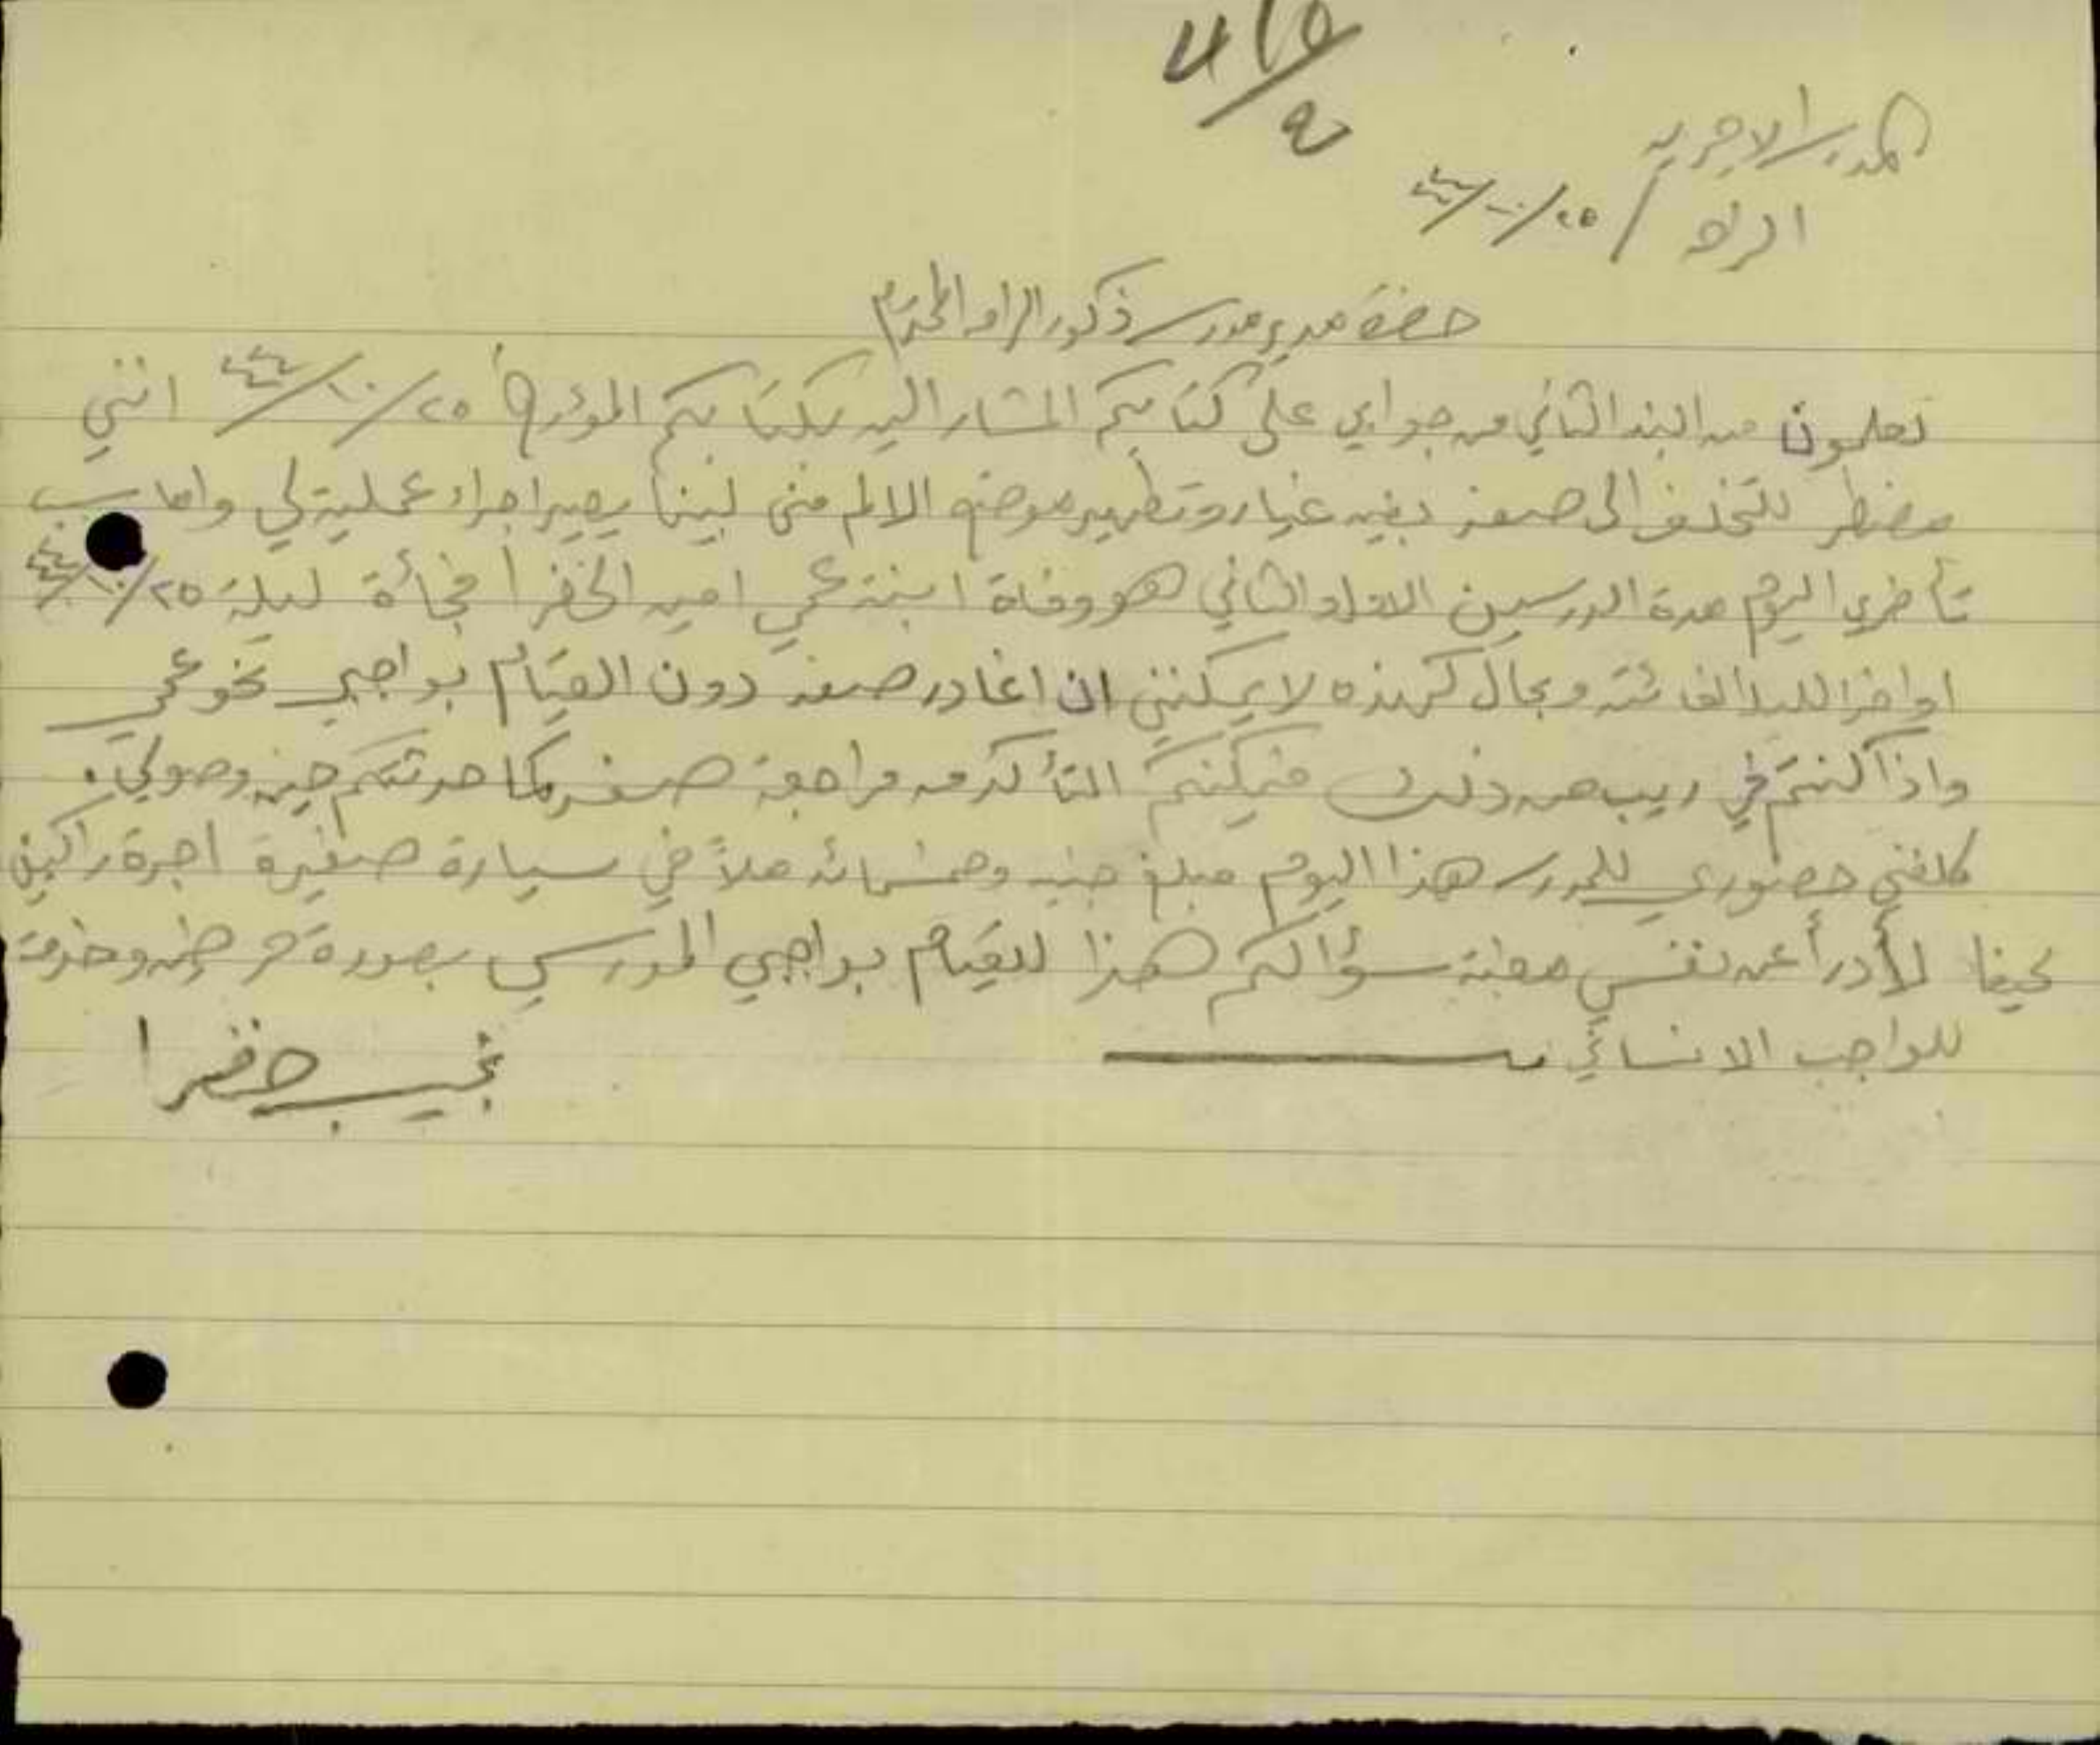 415/9
المدرسة الاميرية
الرامه / ٢٥/١٠/٤٤
حضرة مدير مدرسة ذكور الرامه المحترم
تعلمون من البند الثاني من جوابي على كتابكم المشار اليه بكتابكم المؤرخ ٢٥/١٠/٤٤ انني
مضطر للتخلف الى صفد بغية غيار وتطهير موضع الالم مني لبينما يصير اجراء عملية لي واما سبب
تأخري اليوم مدة الدرسين الاول والثاني هو وفاة ابنة عمي امين الخضرا فجأة ليلة ٢٥/١٠/٤٤
اواخر الليل الفائت وبحال كهذه لا يمكنني ان اغادر صفد دون القيام بواجبي نحو عمي
واذا كنتم في ريب من ذلك فيمكنكم التأكد من مراجعة صفد كما حدثتكم حين وصولي.
كلفني حضوري للمدرسة هذا اليوم مبلغ جنيه وخمسمائة ملاً في سيارة صغيرة اجرة راكبين
لأدرأ عن نفسي مغبة سؤالكم هذا للقيام بواجبي المدرسي بصورة وخدمة
للواجب الانساني
نجيب خضرا